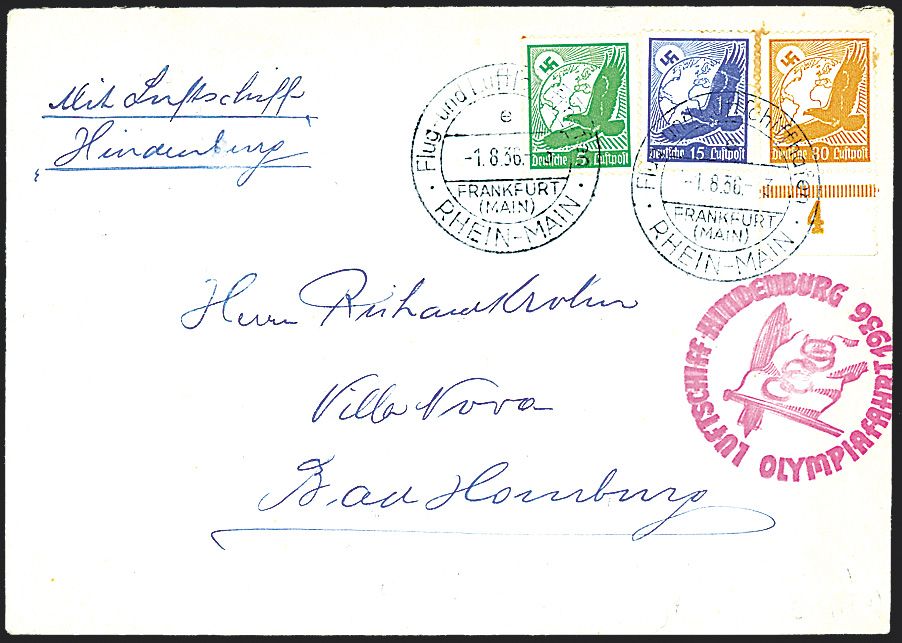 Mit Luftschiff
Hindenburg
5
Deutsche Luftpost
15
Deutsche Luftpost
80
Deutsche Luftpost
4
Flug- und Luft
e
-1.8.36.-
FRANKFURT
(MAIN)
· RHEIN-MAIN ·
-1.8.36.-
FRANKFURT
(MAIN)
· RHEIN-MAIN ·
LUFTSCHIFF HINDENBURG 1936
OLYMPIAFAHRT
Herrn Krohn
Villa Nova
Bad Homburg